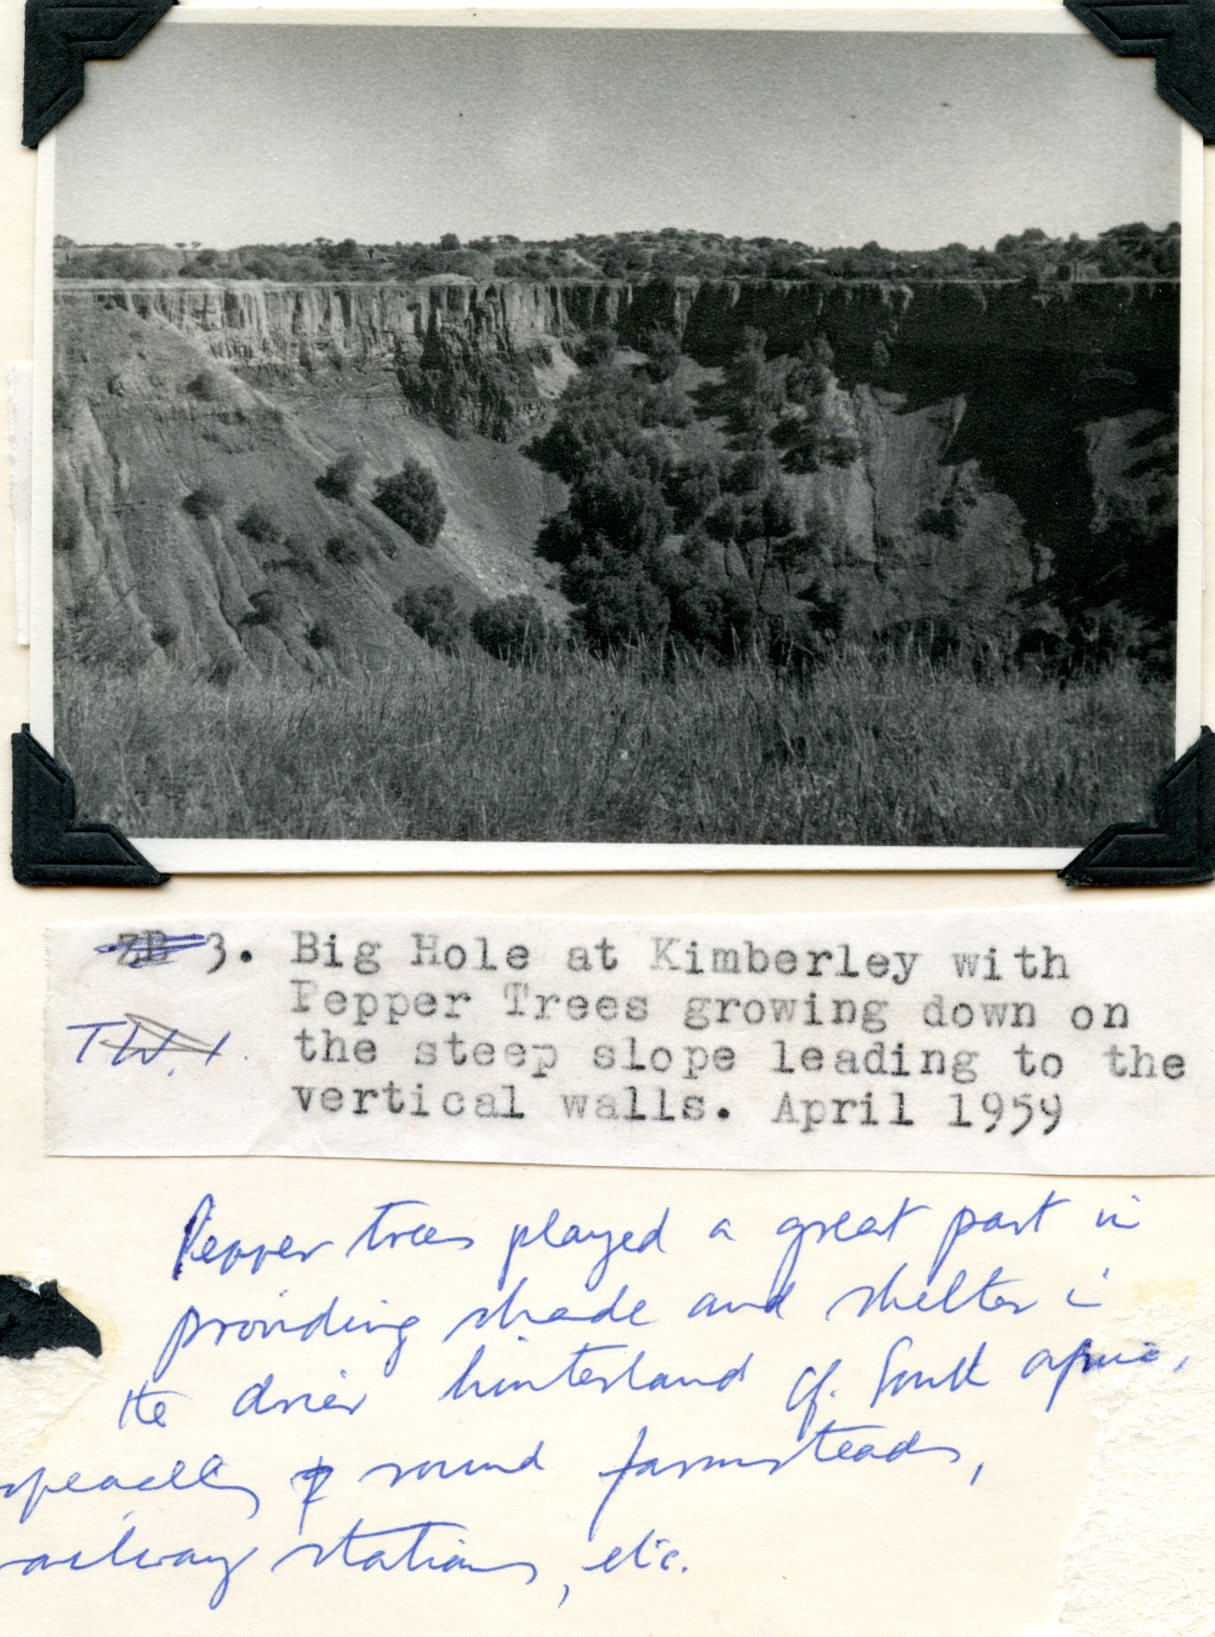 ZB 3. Big Hole at Kimberley with
Pepper Trees growing down on
TW.1. the steep slope leading to the
vertical walls. April 1959
Pepper trees played a great part in
providing shade and shelter in
the drier hinterland of South Africa,
especially round farmsteads,
railway stations, etc.